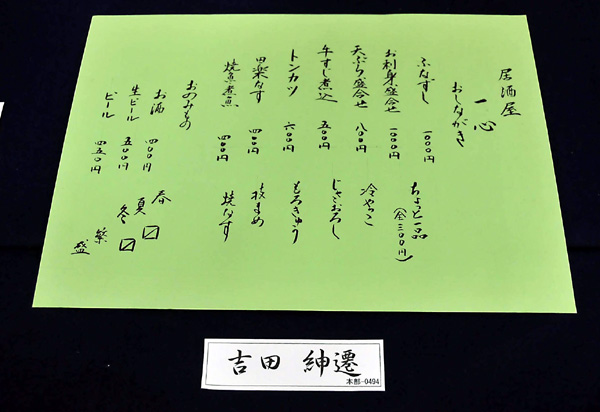 居酒屋
一心
おしながき
ふなずし 一〇〇〇円
お刺身盛合せ 一〇〇〇円
天ぷら盛合せ 八〇〇円
牛すじ煮込 五〇〇円
トンカツ 六〇〇円
田楽なす 四〇〇円
焼魚煮魚 四〇〇円
ちょっと一品
(全三〇〇円)
冷やっこ
じゃこおろし
もろきゅう
枝まめ
焼なす
おのみもの
お酒 四〇〇円
生ビール 五〇〇円
ビール 四五〇円
春
夏
冬
繁
盛
吉田 紳遷
本部-0494